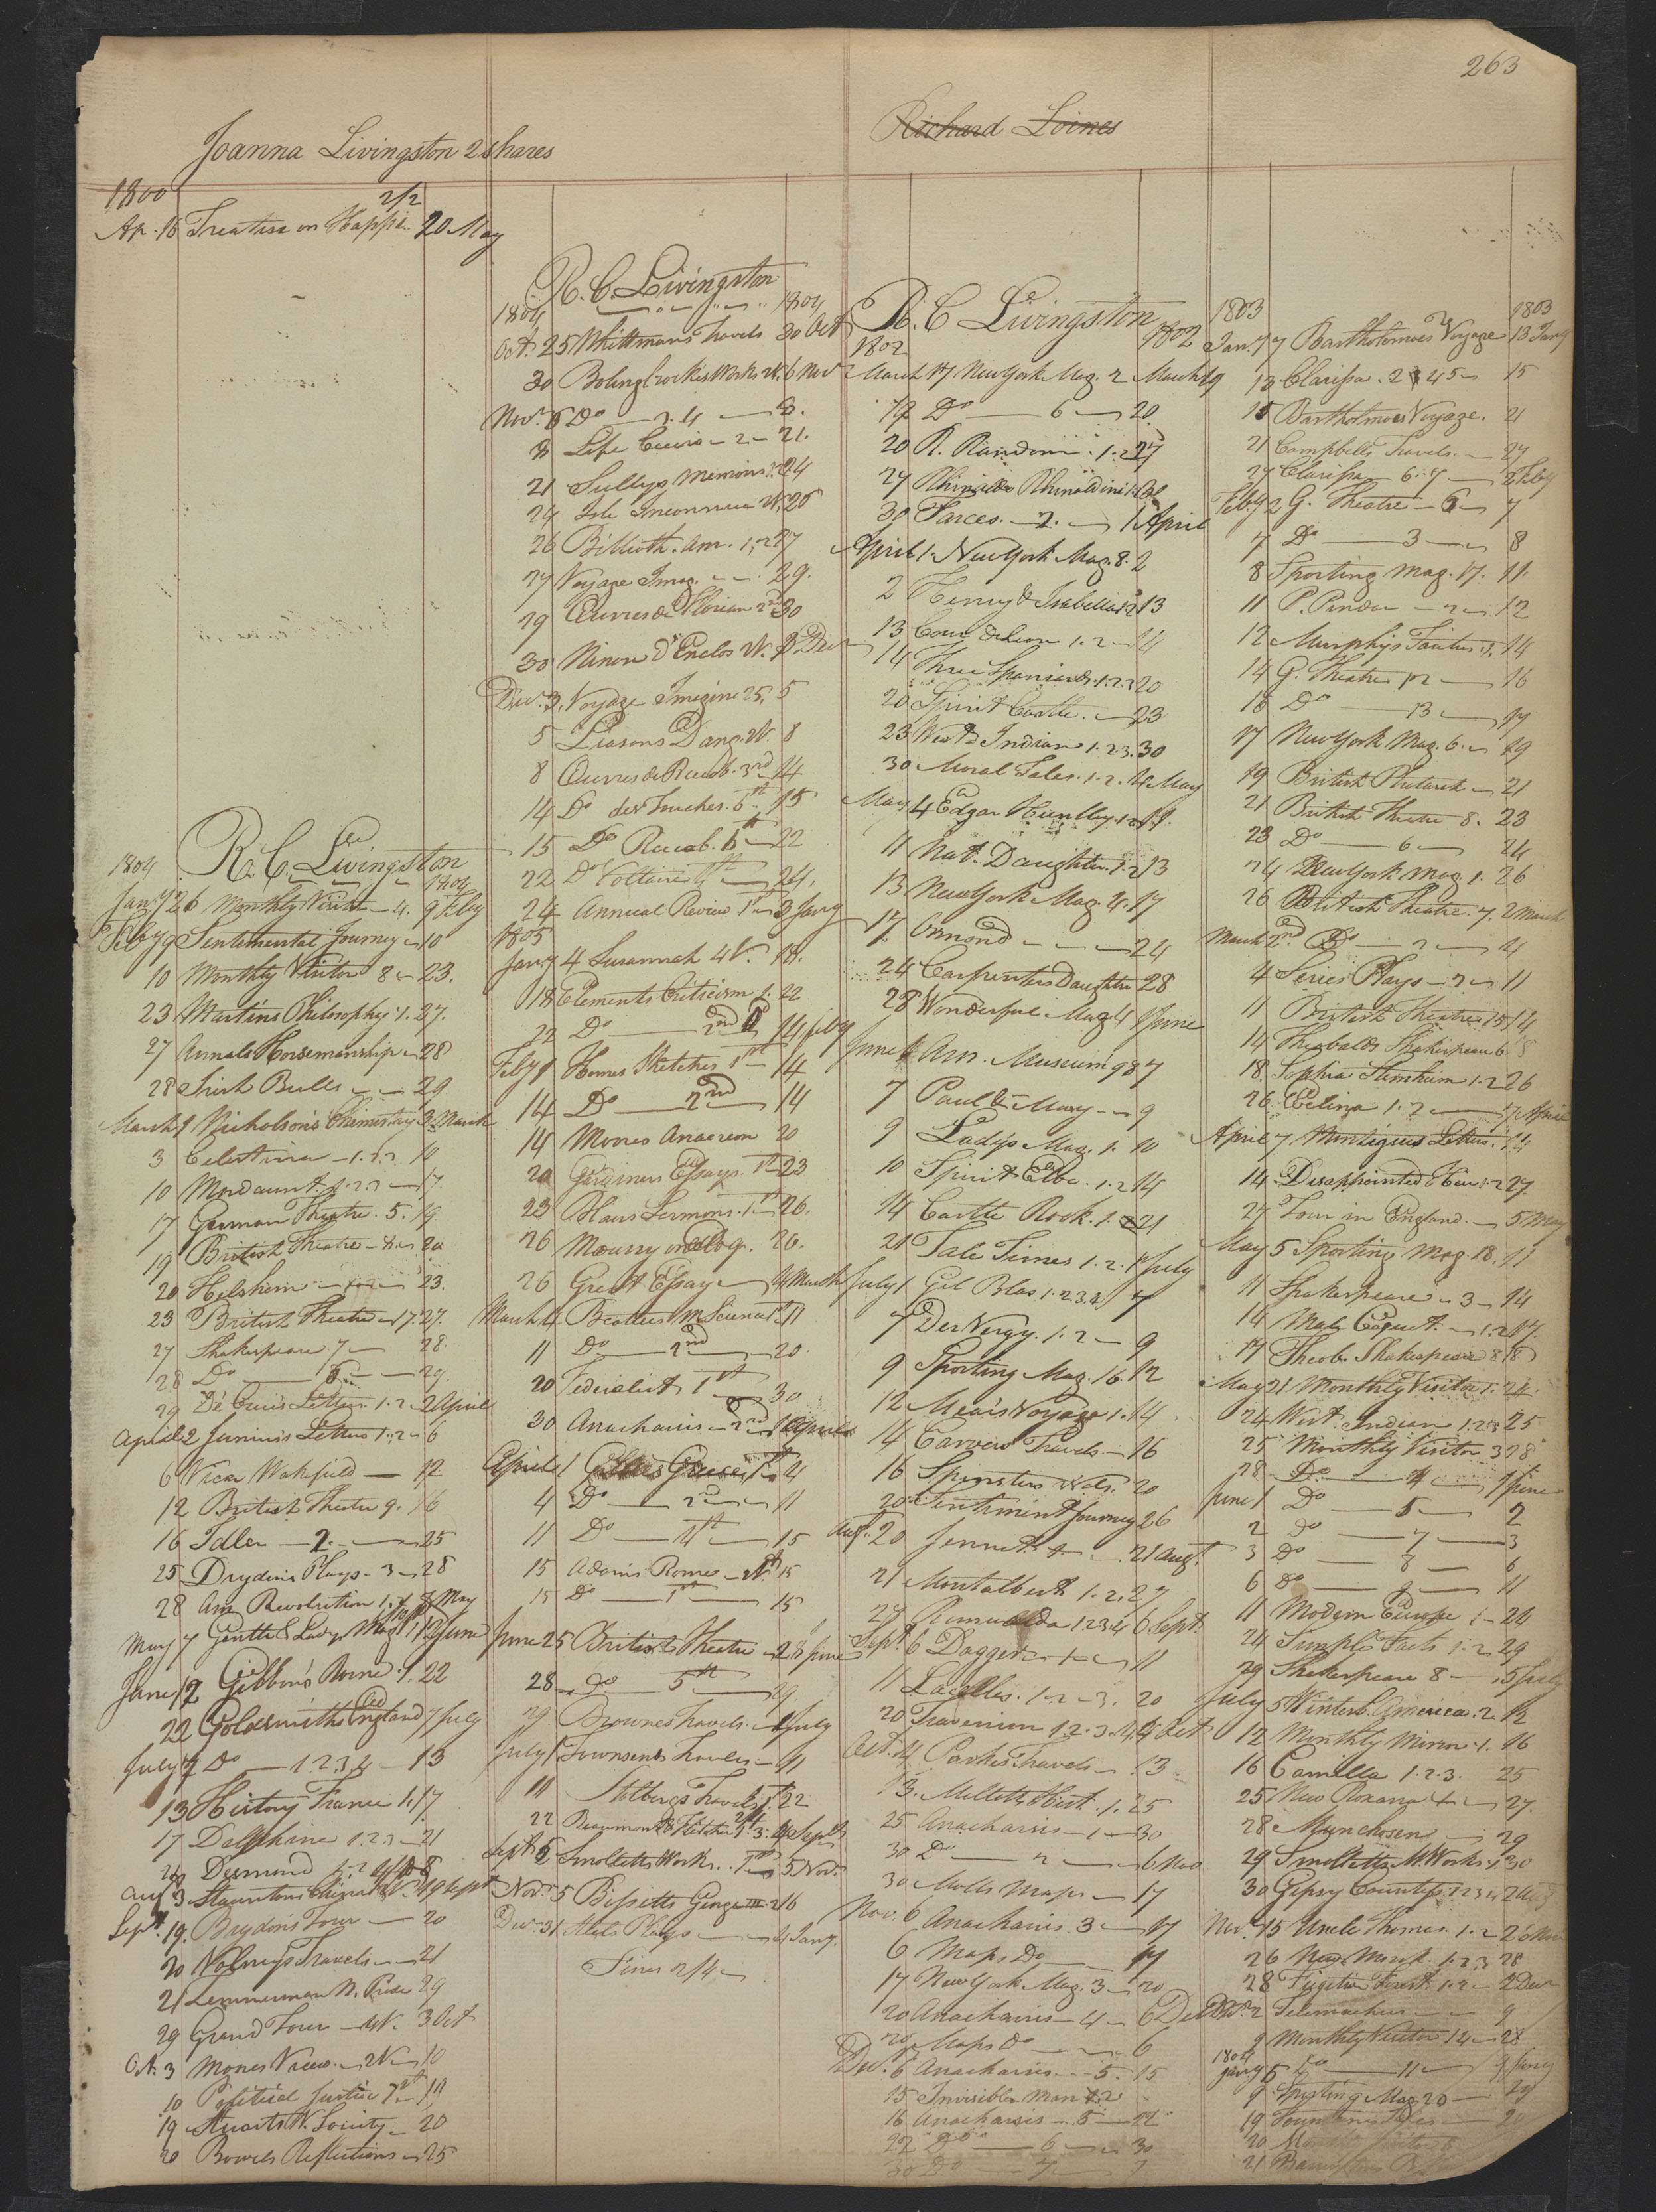 263
Joanna Livingston 2 shares
1800
2/2
Ap. 16 Treatise on Happi.. 20 May
R. C. Livingston
1804 1804
Jany 26 Monthly Visitor - 4. 9 Feby
Feby 9 Sentemental Journey 10
10 Monthly Visitor 8 23.
23 Martins Philosophy 1. 27.
27 Annals Horsemanship 28
28 Irish Bulls 29
March 1 Nicholson's Chimistry 3 March
3 Celestina 1.2.3 10
10 Mordaunt 1.2.3 17.
17 German Theatre 5. 19
19 British Theatre 20
20 Helshem 23.
23 British Theatre 17. 27.
27 Shakespeare 7 28.
28 Do 29.
29 Letters 1.2 2 April
April 2 Junius's Letters 1.2 6
6 Vicar Wakefield 12
12 British Theatre 9. 16
16 Idler 2. 25
25 Drydens Plays 3 28
28 Am Revolution 1. May
May 7 Gentle & Ladys Mag 12 June
June 12 Gibbon's Rome 1. 22
22 Goldsmiths England 7 July
July 7 Do 1.2.3.4 13
13 History France 1. 17.
17 Delphine 1.2.3 21
Desmond 1.2
Aug 3 Stauntons China 19 Sept
Sept. 19. Brydons Tour 20
20 Volneys Travels 21
21 Zemmerman N. Pride 29
29 Grand Tour 3 Oct
Oct. 3 Mores Views 2V. 10
10 Political Justice 19
19 Stuarts V. Society 20
20 Bowels Reflections 25
R. C. Livingston
1804 1804
Oct. 25 Whittmans Travels 30 Oct
30 Bolingbrokes Works 6 Nov
Nov. 6 Do 3.4 8.
8 Life Cowis 2 21.
21 Sullys Memoirs 24
24 Isle Inconnue 26
26 Biblioth. Am. 1,2 27
27 Voyage Imag. 29.
29 Œuvres de Florian 2nd 30
30 Ninon D'Enclos 3 Decr
Decr. 3. Voyage Imagine 25, 5
5 Liasons Dang. 8
8 Œuvres de 3rd 14
14 Do des 6th 15
15 Do 22
22 Do Voltaire 24.
24 Annual Review 1st 3 Jany
1805
Jany 4 Susannah 4V. 18.
18 Elements Criticism 1. 22
22 Do 2nd 14 feby
Feby 1 Homes Sketches 1st 14
14 Do 2nd 14
14 Moores Anacreon 20
20 Gardiners Essays 1st 23
23 Blairs Sermons 1st 26.
26 Maurry on Eloq. 26.
26 Great Essay 4 March
March 4 Beatties M Science 1st 11
11 Do 2nd 20.
20 Federalist 1st 30
30 Anacharsis 2nd 1 April
April 1 Gillies Greece 1st 4
4 Do 2nd 11
11 Do 15
15 Adams Rome 15
15 Do 1st 15
June 25 British Theatre 28 June
28 Do 5th 29
29 Brownes Travels 1 July
July 1 Townsends Travels 11
11 Stolbergs Travels 1st 22
22 Beaumont & Fletcher Sept
Sept 5 Smolletts Works 1st 5 Nov
Nov. 5 Bissetts George III 2 16
Decr 31 Plays 4 Jany.
Fines 2/4
Richard Loines
R. C Livingston
1802 1802
March 17 New York Mag. 2 March 19
19 Do 6 20
20 R. Random 1.2 27
27 Rhinaldo Rhinaldini 30
30 Farces 2. 1 April
April 1 New York Mag. 8. 2
2 Henry & Isabella 1.2 13
13 Cour de Leon 1.2 14
14 Three Spaniards 1.2.3 20
20 Spirit Castle 23
23 West Indian 1.2.3. 30
30 Moral Tales 1.2. 4 May
May 4 Edgar Huntley 1.2 11.
11 Nat. Daughter 1.2 13
13 New York Mag. 4. 17
17 Ormond 24
24 Carpenters Daughter 28
28 Wonderful Mag. 4 1 June
June 1 Am. Museum 9 & 7
7 Paul & Mary 9
9 Ladys Mag. 1. 10
10 Spirit Elbe 1.2 14
14 Castle Rock 1.2 21
21 Tale Times 1.2. 1 July
July 1 Gil Blas 1.2.3.4 7
7 Der Vergy. 1.2 9
9 Sporting Mag. 16 12
12 Mear's Voyage 1. 14
14 Carvers Travels 16
16 Spinsters 20
20 Sentiment Journey 26
Augt. 20 Jennet 21 Augt.
21 Montalbert 1.2. 27
27 Romualda 1234 6 Sept.
Sept. 6 Dagger 11
11 Lacelles 1.2.3. 20
20 Traverison 1.2.3.4. 4 Oct
Oct. 4 Parkes Travels 13
13. Milletts Hist. 1. 25
25 Anacharsis 1 30
30 Do 2 6 Nov
30 Molls Maps 17
Nov. 6 Anacharsis 3 17
6 Maps Do 17
17 New York Mag. 3 20
20 Anacharsis 4 6 Dec
20 Maps Do 6
Dec. 6 Anacharsis 5. 15
15 Invisible Man 1.2
16 Anacharsis 5 22
22 Do 6 30
30 Do 7
1803 1803
Jany 7 Bartholomews Voyage 13 Jany
13 Clarissa 2 4 5 15
15 Bartholomews Voyage. 21
21 Campbells Travels 27
27 Clarissa 6.7 2 Feby
Feby 2 G. Theatre 6 7
7 Do 3 8
8 Sporting Mag. 17. 11.
11 P. Pindar 2 12
12 Murphys Tacitus 1. 14
14 G. Theatre 12 16
16 Do 13 17
17 New York Mag. 6. 19
19 British Plutarch 21
21 British Theatre 8. 23
23 Do 6 24
24 New York Mag. 1. 26
26 British Theatre 7. 2 March
March 2nd Do 2 4
4 Series Plays 2 11
11 British Theatre 15 14
14 Theobalds Shakespeare 6 18
18. Sophia Sternheim 1.2 26
26 Celina 1.2 7 April
April 7 Montigues Letters 14
14 Disappointed Heir 1.2 27
27 Tour in England 5 May
May 5 Sporting Mag. 18. 11
11 Shakespeare 3 14
14 Male Coquet 1.2 17
17 Theob. Shakespeare 8 18
May 21 Monthly Visitor 1. 24.
24 West Indian 1.2.3 25
25 Monthly Visitor 3 28
28 Do 4 1 June
June 1 Do 5 2
2 Do 7 3
3 Do 8 6
6 Do 9 11
11 Modern Europe 1 24
24 Simple Facts 1.2 29
29 Shakespeare 8 5 July
July 5 Winterb. America 2 12
12 Monthly Mirror 1. 16
16 Camilla 1.2.3. 25
25 New Roxana 27.
28 Munchosen 29
29 Smolletts M. Works 1. 30
30 Gipsy Countess 1234 2 Aug
Nov. 15 Uncle Thomas 1.2 26 Nov
26 New Monk 1.2.3 28
28 Fugitive Forest 1.2 2 Decr
Decr. 2 Telemachus 9
9 Monthly Visitor 14 28
1804
Jany 5 Do 11 9 Jany
9 Sporting Mag. 20 19
19 20
20
21